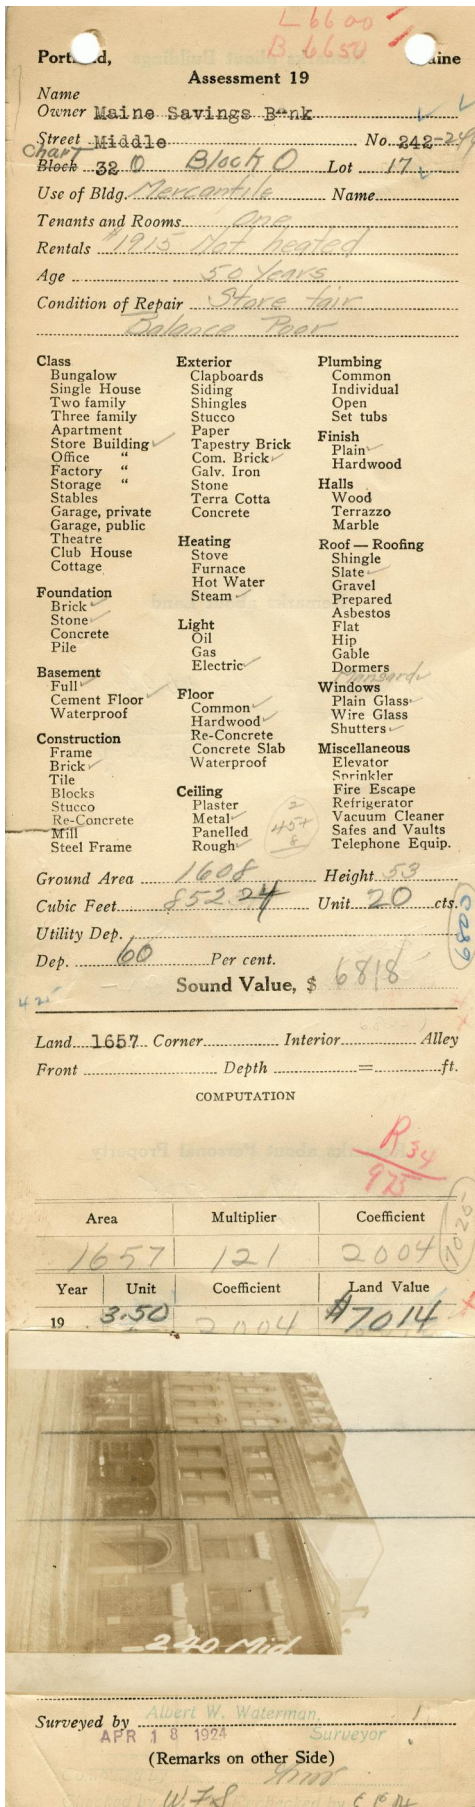 L 6600
B 6650
Portland, Maine
Assessment 19
Name
Owner Maine Savings Bank
Street Middle No. 242-244
Chart
Block 32 O Block O Lot 17
Use of Bldg. Mercantile Name
Tenants and Rooms one
Rentals $1915 Not heated
Age 50 Years
Condition of Repair Store fair
Balance Poor
Class
Bungalow
Single House
Two family
Three family
Apartment
Store Building ✓
Office "
Factory "
Storage "
Stables
Garage, private
Garage, public
Theatre
Club House
Cottage
Foundation
Brick ✓
Stone ✓
Concrete
Pile
Basement
Full ✓
Cement Floor ✓
Waterproof
Construction
Frame
Brick ✓
Tile
Blocks
Stucco
Re-Concrete
Mill
Steel Frame
Exterior
Clapboards
Siding
Shingles
Stucco
Paper
Tapestry Brick
Com. Brick ✓
Galv. Iron
Stone
Terra Cotta
Concrete
Heating
Stove
Furnace
Hot Water
Steam ✓
Light
Oil
Gas
Electric ✓
Floor
Common ✓
Hardwood ✓
Re-Concrete
Concrete Slab
Waterproof
Ceiling
Plaster
Metal ✓
Panelled
Rough ✓
Plumbing
Common
Individual
Open
Set tubs
Finish
Plain ✓
Hardwood
Halls
Wood
Terrazzo
Marble
Roof — Roofing
Shingle
Slate ✓
Gravel
Prepared
Asbestos
Flat
Hip
Gable
Dormers
Mansard ✓
Windows
Plain Glass ✓
Wire Glass
Shutters ✓
Miscellaneous
Elevator
Sprinkler
Fire Escape
Refrigerator
Vacuum Cleaner
Safes and Vaults
Telephone Equip.
Ground Area 1608 Height 53
Cubic Feet 85224 Unit 20 cts.
Utility Dep.
Dep. 60 Per cent.
Sound Value, $ 6818
425
Land 1657 Corner Interior Alley
Front Depth = ft.
COMPUTATION
R 34
975
Area Multiplier Coefficient
1657 121 2004
7025
Year Unit Coefficient Land Value
19 3.50 2004 $7014
240 Mid.
Surveyed by Albert W. Waterman,
APR 18 1924 Surveyor
(Remarks on other Side)
W.F.S.